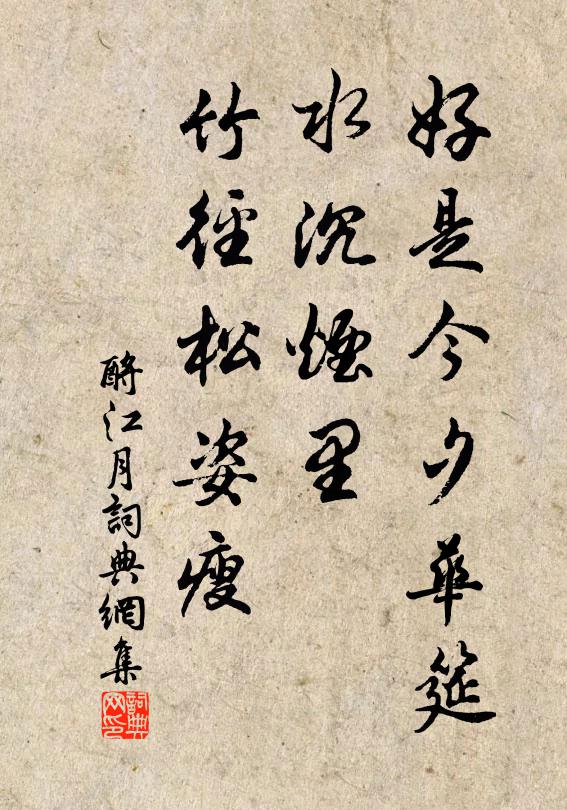 好是今夕華筵
水沉煙里
竹徑松姿瘦
酹江月詞典網集
詞典网印